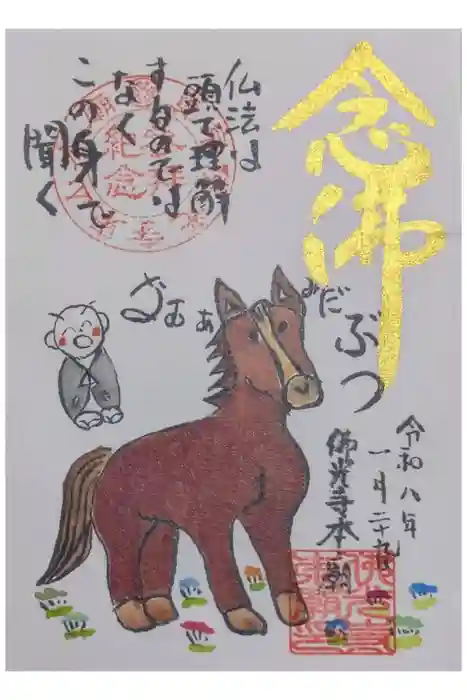 念佛
仏法は
頭で理解
するのでは
なく
この身で
聞く
なむあみだぶつ
令和八年
一月二十九日
佛光寺本廟
参拝
紀念